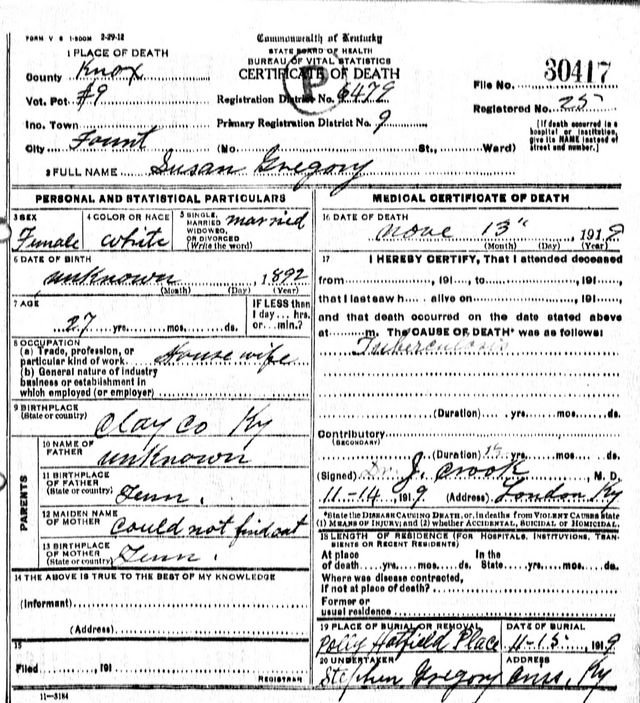 FORM V S 1-500M 2-29-12
Commonwealth of Kentucky
STATE BOARD OF HEALTH
BUREAU OF VITAL STATISTICS
CERTIFICATE OF DEATH
P
1 PLACE OF DEATH
County Knox
Vot. Pct #9
Inc. Town
City Fount
Registration District No. 6479
Primary Registration District No. 9
(No St., Ward)
File No. 30417
Registered No. 25
[If death occurred in a hospital or institution, give its NAME instead of street and number.]
2 FULL NAME Susan Gregory
PERSONAL AND STATISTICAL PARTICULARS
3 SEX Female
4 COLOR OR RACE White
5 SINGLE, MARRIED WIDOWED, OR DIVORCED (Write the word) married
6 DATE OF BIRTH
unknown, 1892
(Month) (Day) (Year)
7 AGE
27 yrs. mos. ds.
IF LESS than 1 day... hrs. or... min.?
8 OCCUPATION
(a) Trade, profession, or particular kind of work House wife
(b) General nature of industry business or establishment in which employed (or employer)
9 BIRTHPLACE (State or country)
Clay co Ky
PARENTS
10 NAME OF FATHER unknown
11 BIRTHPLACE OF FATHER (State or country) Tenn.
12 MAIDEN NAME OF MOTHER Could not find out
13 BIRTHPLACE OF MOTHER (State or country) Tenn.
14 THE ABOVE IS TRUE TO THE BEST OF MY KNOWLEDGE
(Informant)
(Address)
15
Filed, 191
REGISTRAR
11-3184
MEDICAL CERTIFICATE OF DEATH
16 DATE OF DEATH
Nove 13", 1919
(Month) (Day) (Year)
17 I HEREBY CERTIFY, That I attended deceased
from, 191..., to, 191...,
that I last saw h... alive on, 191...,
and that death occurred on the date stated above
at m. The CAUSE OF DEATH* was as follows:
Tuberculosis
(Duration) yrs. mos. ds.
Contributory
(SECONDARY)
(Duration) yrs. mos. ds.
(Signed) Dr J. Crook, M. D.
11-14, 1919 (Address) London Ky
*State the DISEASE CAUSING DEATH, or, in deaths from VIOLENT CAUSES state (1) MEANS OF INJURY; and (2) whether ACCIDENTAL, SUICIDAL OR HOMICIDAL.
18 LENGTH OF RESIDENCE (FOR HOSPITALS, INSTITUTIONS, TRANSIENTS OR RECENT RESIDENTS)
At place of death yrs. mos. ds. In the State yrs. mos. ds.
Where was disease contracted, if not at place of death?
Former or usual residence
19 PLACE OF BURIAL OR REMOVAL
Polly Hatfield Place
DATE OF BURIAL
11-15, 1919
20 UNDERTAKER
Stephen Gregory
ADDRESS
Ky